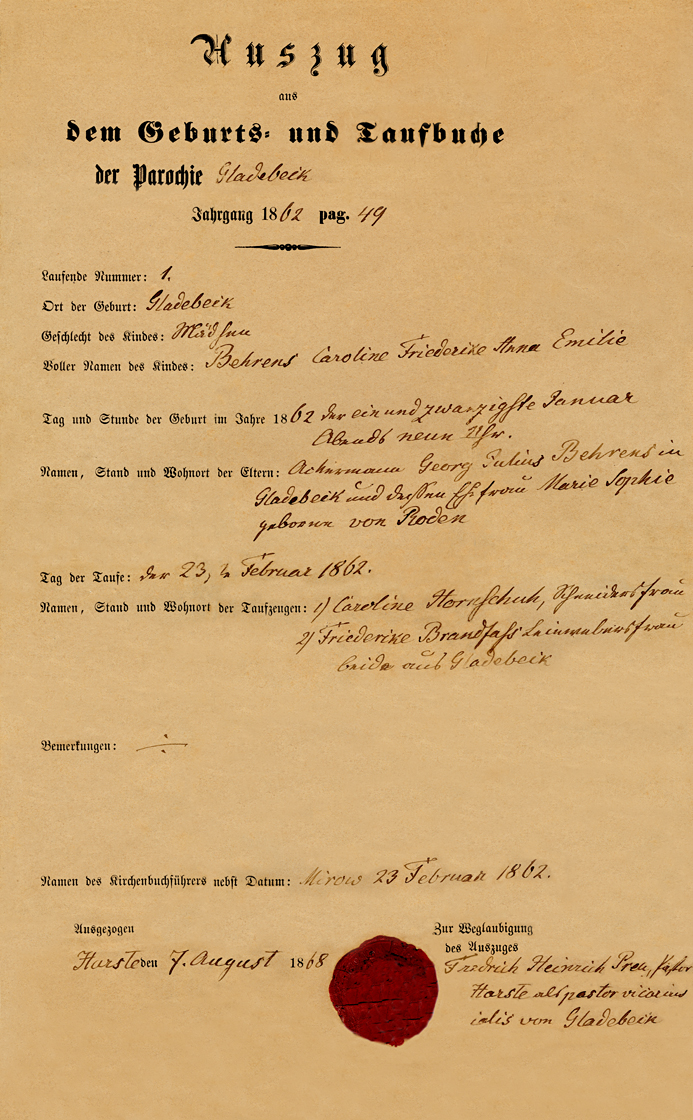 Auszug
aus
dem Geburts- und Taufbuche
der Parochie Gladebeck
Jahrgang 1862 pag. 49
Laufende Nummer: 1.
Ort der Geburt: Gladebeck
Geschlecht des Kindes: Mädchen
Voller Namen des Kindes: Behrens Caroline Friederike Anna Emilie
Tag und Stunde der Geburt im Jahre 1862 der ein und zwanzigste Januar
Abends neun Uhr.
Namen, Stand und Wohnort der Eltern: Ackermann Georg Julius Behrens in
Gladebeck und dessen Ehefrau Marie Sophie
geborne von Roden
Tag der Taufe: den 23, Februar 1862.
Namen, Stand und Wohnort der Taufzeugen: 1) Caroline Hornschuh, Schneidersfrau
2) Friederike Leinewebersfrau
beide aus Gladebeck
Bemerkungen: ÷
Namen des Kirchenbuchführers nebst Datum: Mirow 23 Februar 1862.
Ausgezogen
Harste den 7. August 1868
Zur Beglaubigung
des Auszuges
Friedrich Heinrich Pastor
Harste als pastor vicarius
ialis von Gladebeck